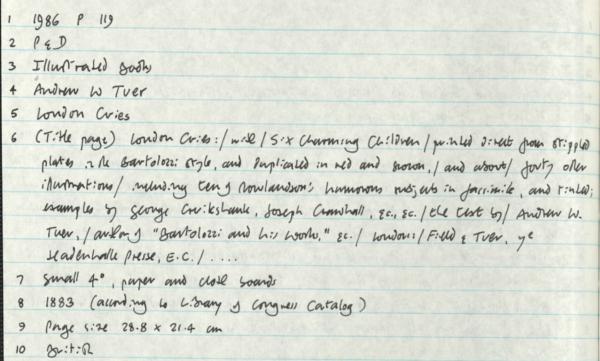 1 1986 P 119
2 P & D
3 Illustrated Books
4 Andrew W Tuer
5 London Cries
6 (Title page) London Cries:/ with / Six Charming Children / printed direct from stippled
plates in the Bartolozzi style, and duplicated in red and brown, / and about / forty other
illustrations / including ten of Rowlandson's humorous subjects in facsimile, and tinted;
examples by George Cruikshank, Joseph Crawhall, &c., &c. / the text by / Andrew W.
Tuer, / author of "Bartolozzi and his works," &c. / London: / Field & Tuer, ye
Leadenhalle Presse, E.C. / ....
7 Small 4°, paper and cloth boards
8 1883 (according to Library of Congress Catalog)
9 Page size 28.8 x 21.4 cm
10 British